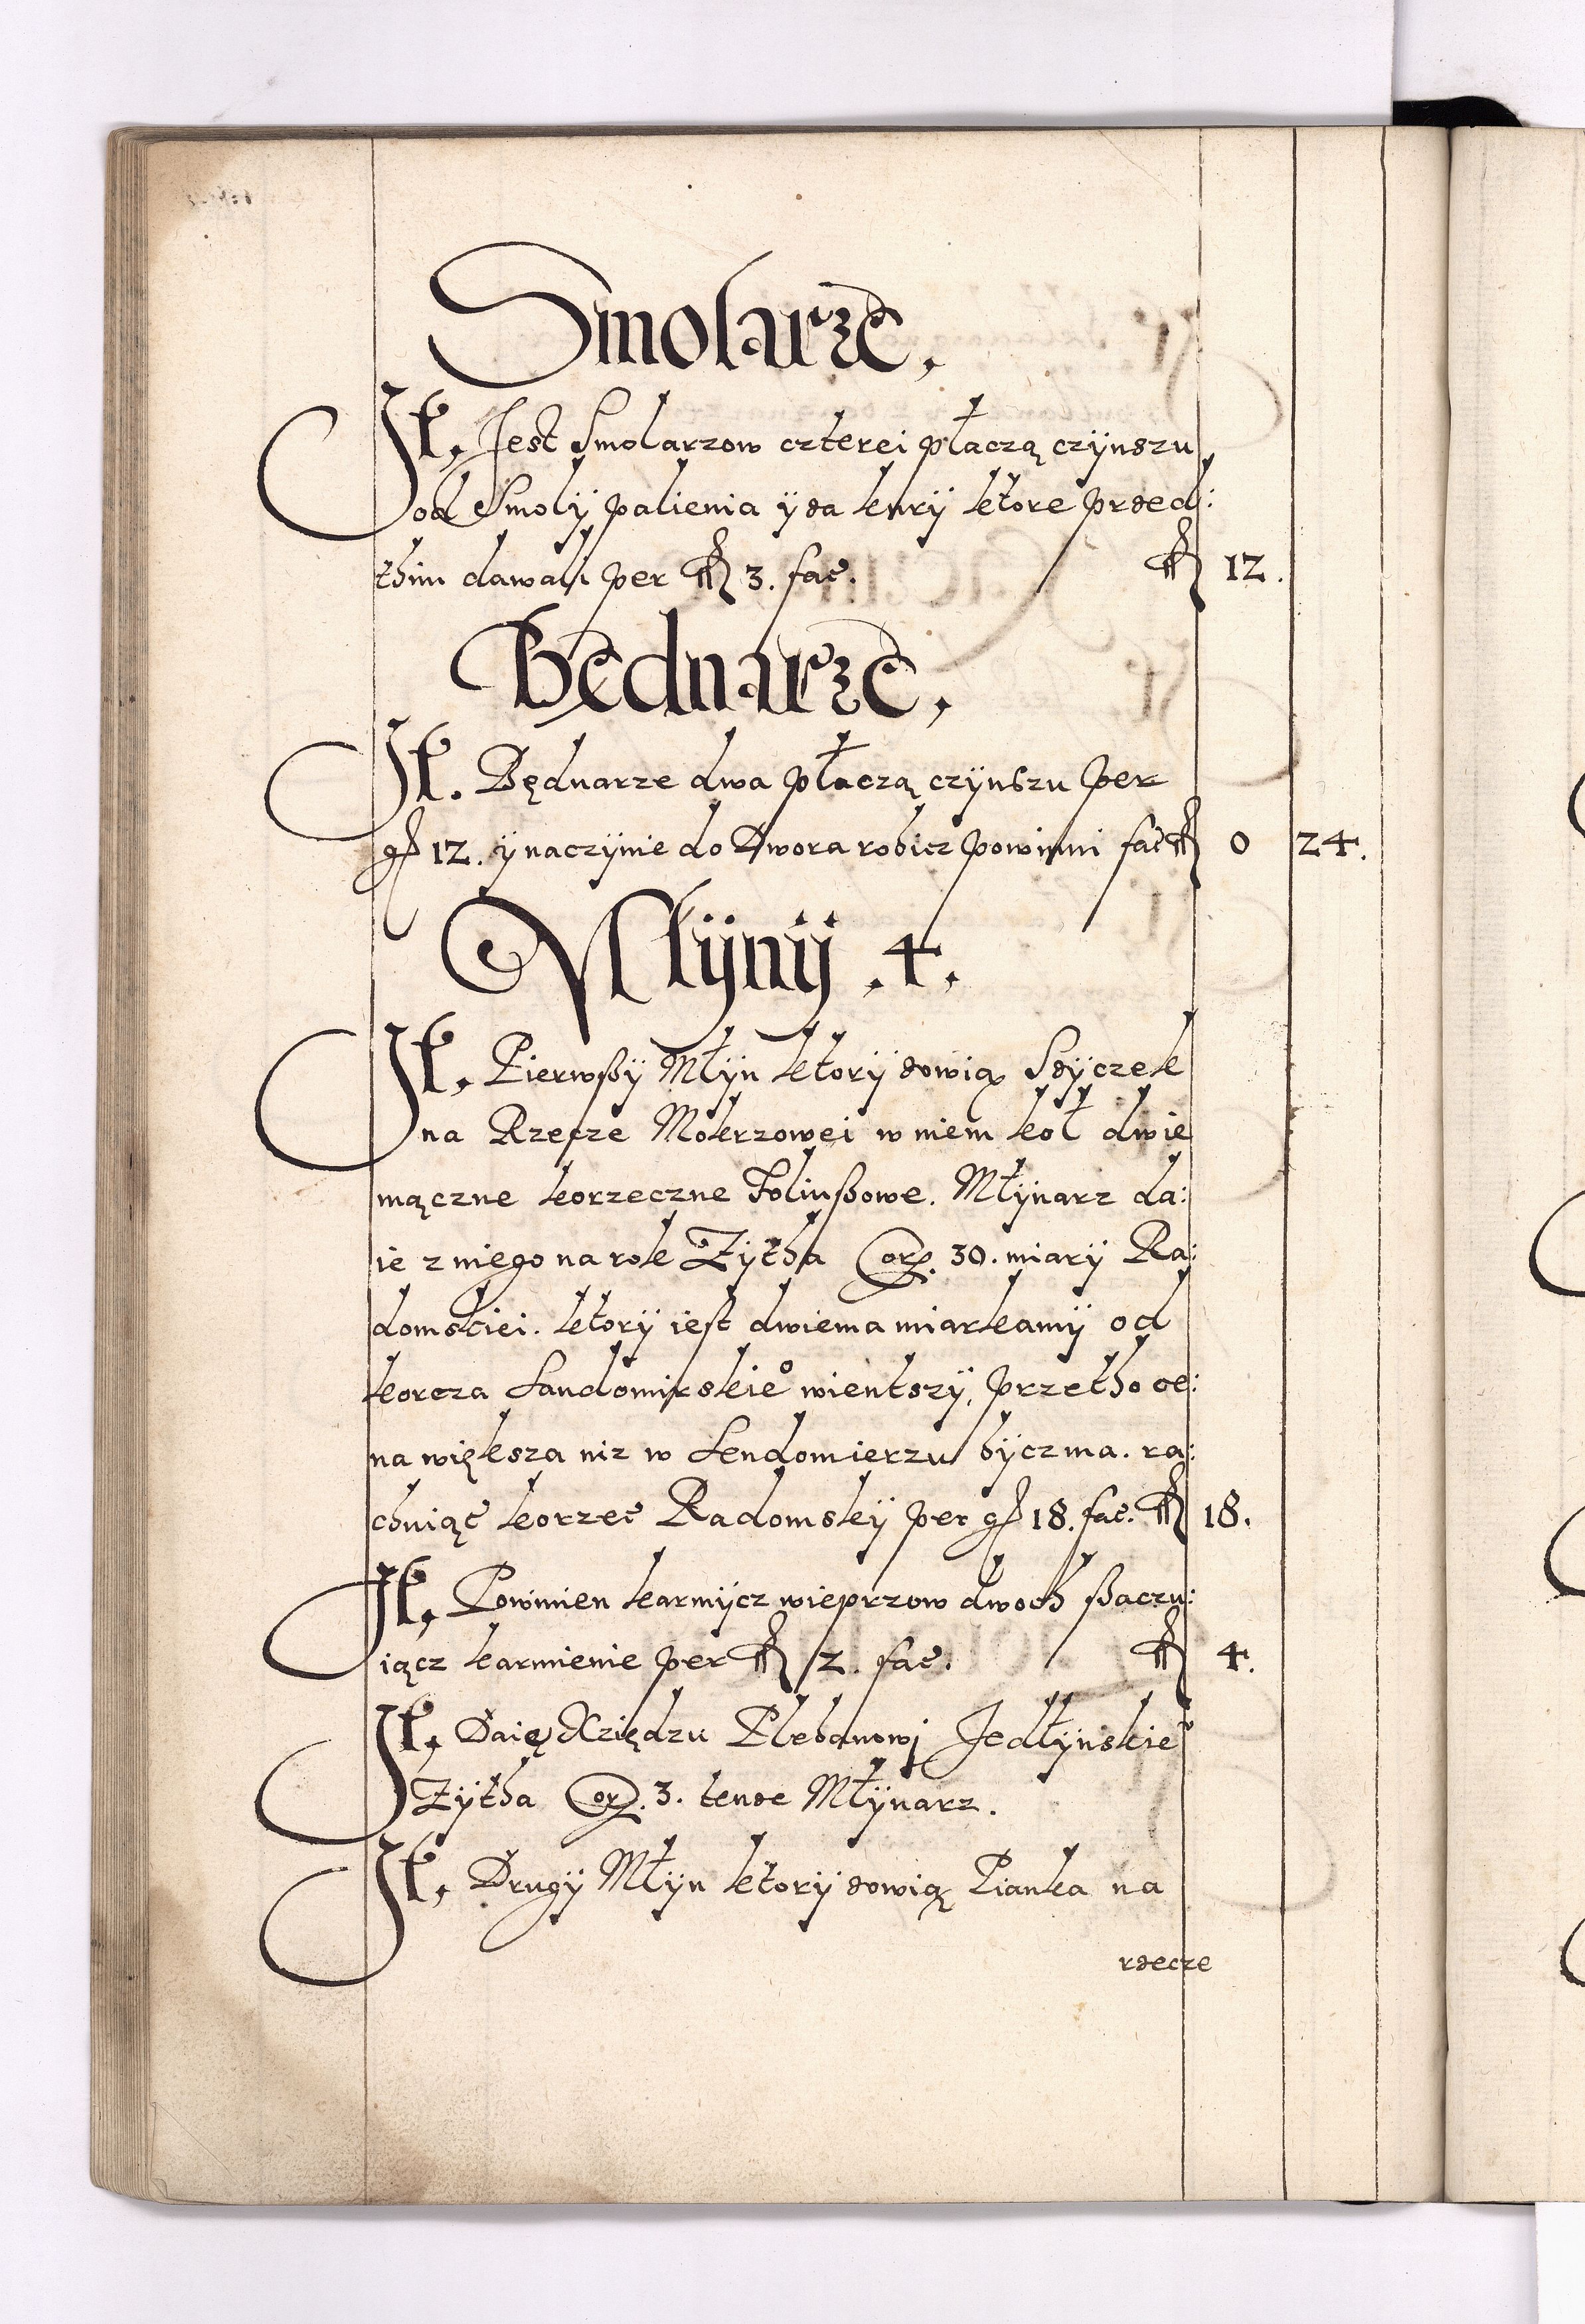 Smolarze,
It, Jest Smolarzow czterei płaczą czÿnszu
od Smolÿ palienia ÿ za kurÿ ktore przed:
thim dawali per fl 3. fac. fl 12.
Bednarze,
It. Będnarze dwa płaczą czÿnszu per
gr 12. ÿ naczÿnie do Dwora robicz powinni fac fl 0 24.
Młÿnÿ .4.
It, Pierwßÿ Młÿn ktorÿ zowią Szÿczek
na Rzecze Mokrzowei w niem koł dwie
mączne korzeczne Foliußowe. Młÿnarz da:
ie z niego na rok Zÿtha Cor. 30. miarÿ Ra:
domskiei. ktorÿ iest dwiema miarkamÿ od
korcza Sandomirskieº wientszÿ, przetho ce:
na większa niz w Sendomierzu bÿcz ma. ra:
chuiąc korzec Radomskÿ per gr 18. fac. fl 18.
It, Powinien karmÿcz wieprzow dwoch ßaczu:
iącz karmienie per fl 2. fac. fl 4.
It, Daię Xziędzu Plebanowj Jedłÿnskieº
Zÿtha Cor. 3. tenze Młÿnarz.
It, Drugÿ Młÿn ktorÿ zowią Pianka na
rzecze